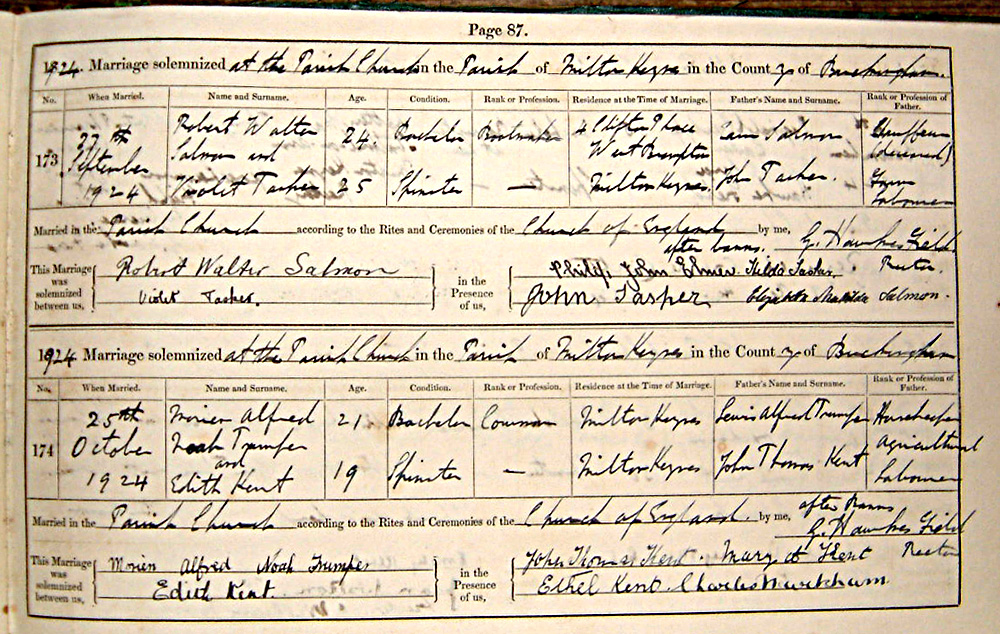 Page 87.
1924. Marriage solemnized at the Parish Church in the Parish of Milton Keynes in the County of Buckingham.
No. When Married. Name and Surname. Age. Condition. Rank or Profession. Residence at the Time of Marriage. Father's Name and Surname. Rank or Profession of Father.
173 September 1924
Robert Walter Salmon and 24. Bachelor 4 Clifton Place West Brompton Salmon Chauffeur (deceased)
Violet Tasker 25 Spinster — Milton Keynes. John Tasker. Farm Labourer
Married in the Parish Church according to the Rites and Ceremonies of the Church of England after banns. by me, G. Hawkes Field Rector.
This Marriage was solemnized between us, Robert Walter Salmon
Violet Tasker.
in the Presence of us, Philip John Hilda Tasker.
John Elizabeth Matilda Salmon.
1924. Marriage solemnized at the Parish Church in the Parish of Milton Keynes in the County of Buckingham
No. When Married. Name and Surname. Age. Condition. Rank or Profession. Residence at the Time of Marriage. Father's Name and Surname. Rank or Profession of Father.
174 25th October 1924
Alfred Noah Trumper and 21 Bachelor Cowman Milton Keynes Lewis Alfred Trumper
Edith Kent 19 Spinster — Milton Keynes John Thomas Kent Agricultural Labourer
Married in the Parish Church according to the Rites and Ceremonies of the Church of England. by me, after Banns G. Hawkes Field Rector
This Marriage was solemnized between us, Alfred Noah Trumper
Edith Kent.
in the Presence of us, John Thomas Kent. Mary Kent
Ethel Kent. Charles